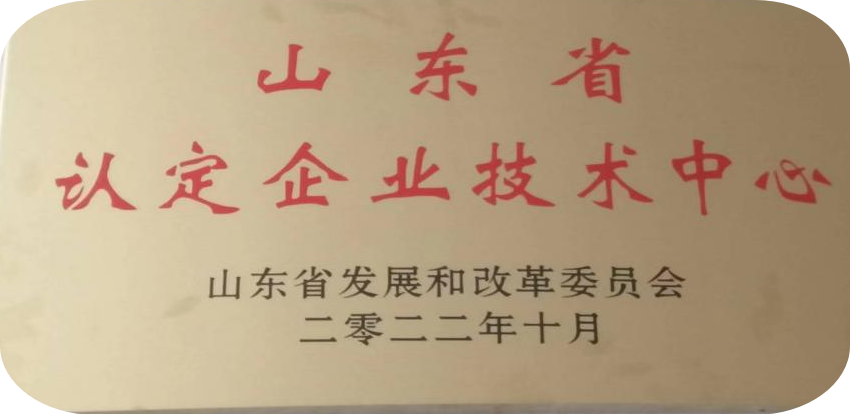 山东省
认定企业技术中心
山东省发展和改革委员会
二零二二年十月